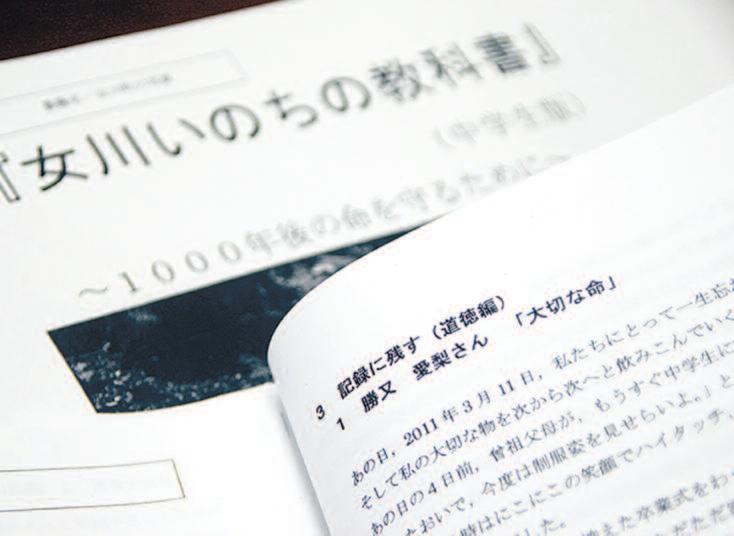 『女川いのちの教科書』
（中学生版）
～1000年後の命を守るために～
3 記録に残す（道徳編）
1 勝又 愛梨さん 「大切な命」
あの日，2011年3月11日，私たちにとって一生忘
そして私の大切な物を次から次へと飲みこんでいく
あの日の4日前，曾祖父母が，もうすぐ中学生に
たおいで，今度は制服姿を見せらいよ。」と
時はにこにこの笑顔でハイタッチ，
控えた卒業式をわ
した。